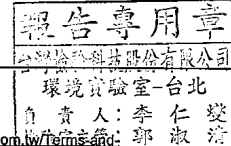 報告專用章
台灣檢驗科技股份有限公司
環境實驗室-台北
負責人：李仁燮
郭淑清
om.tw/Terms-and-